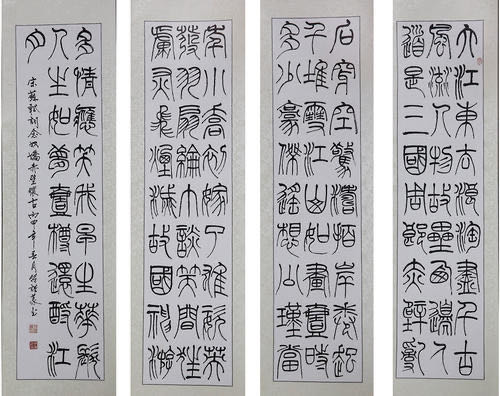 大江東去浪淘盡千古
風流人物故壘西邊人
道是三國周郎赤壁亂
石穿空驚濤拍岸卷起
千堆雪江山如畫壹時
多少豪傑遙想公瑾當
年小喬初嫁了雄姿英
發羽扇綸巾談笑間狂
虜灰飛煙滅故國神游
多情應笑我早生華髮
人生如夢壹樽還酹江
月
宋蘇軾詞念奴嬌赤壁懷古丙申年